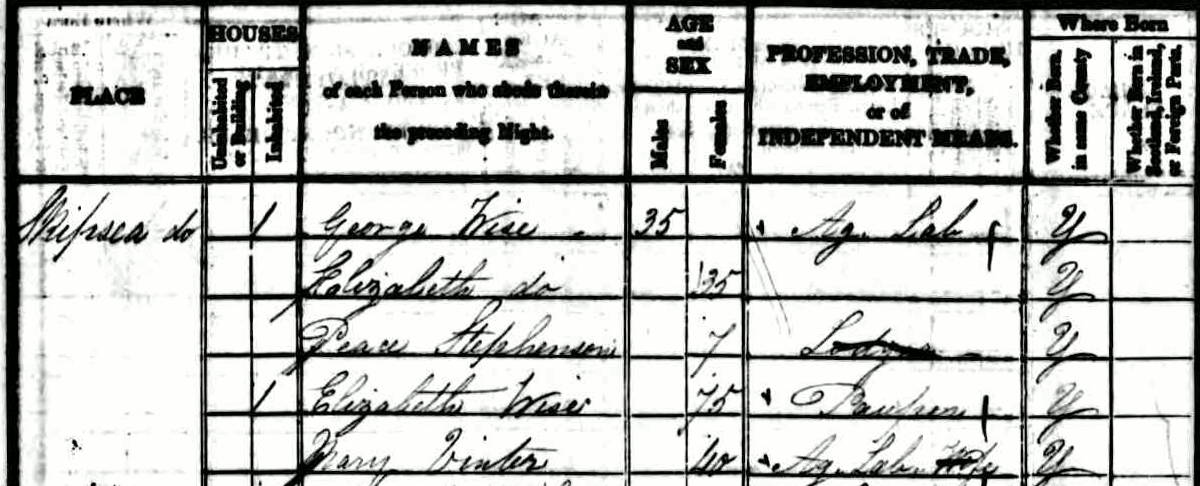 PLACE
HOUSES
Uninhabited or Building
Inhabited
NAMES
of each Person who abode therein
the preceding Night.
AGE
and
SEX
Males
Females
PROFESSION, TRADE,
EMPLOYMENT,
or of
INDEPENDENT MEANS.
Where Born
Whether Born in same County
Whether Born in Scotland, Ireland, or Foreign Parts.
Skipsea do 1 George Wise 35 Ag. Lab Y
Elizabeth do 35 Y
Peace Stephenson 7 Y
1 Elizabeth Wise 75 Y
Mary Vinter 40 Ag. Lab Y